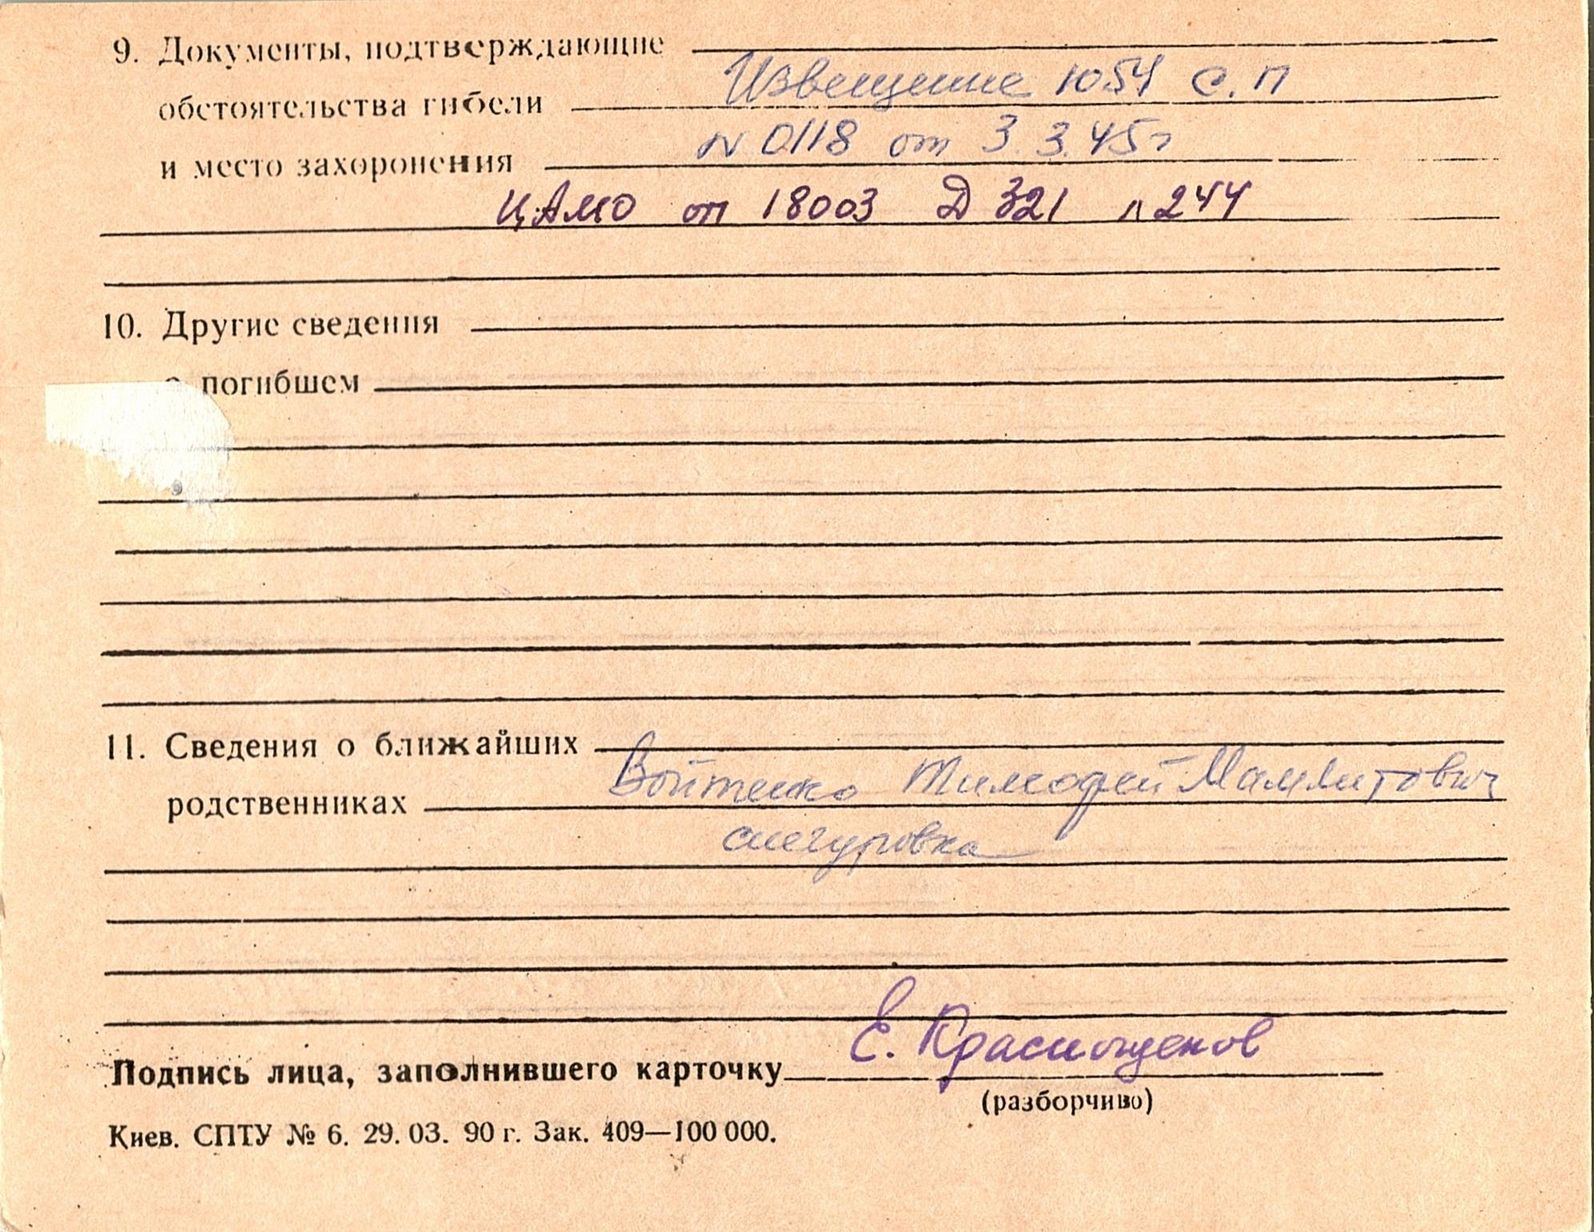 9. Документы, подтверждающие
Извещение 1054 с.п
обстоятельства гибели
N 0118 от 3.3.45г
и место захоронения
ЦАМО оп 18003 Д 321 л 244
10. Другие сведения
о погибшем
11. Сведения о ближайших
Войтенко Тимофей
родственниках
снегуровка
Е. Краснощеков
Подпись лица, заполнившего карточку
(разборчиво)
Киев. СПТУ № 6. 29. 03. 90 г. Зак. 409—100 000.